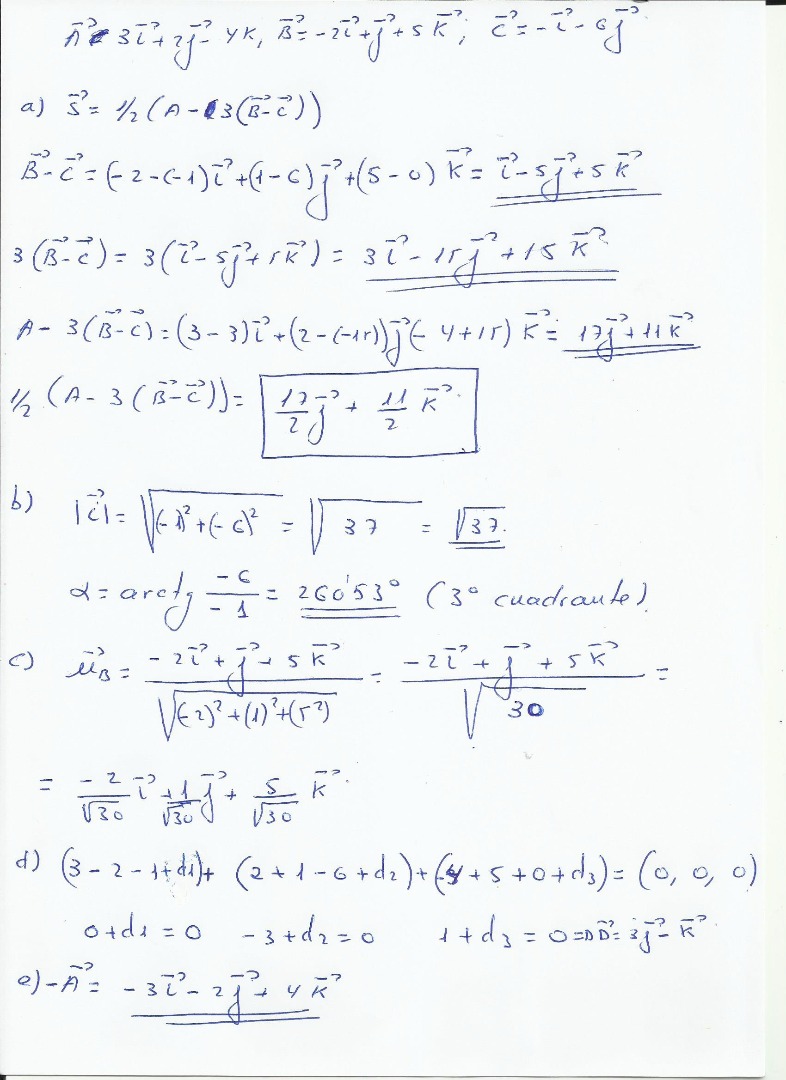 A⃗ = 3i⃗ + 2j⃗ - 4K, B⃗ = -2i⃗ + j⃗ + 5K⃗; C⃗ = -i⃗ - 6j⃗
a) S⃗ = 1/2 (A - 3(B⃗-C⃗))
B⃗-C⃗ = (-2-(-1)i⃗ + (1-6)j⃗ + (5-0)K⃗ = i⃗ - 5j⃗ + 5K⃗
3(B⃗-C⃗) = 3(i⃗ - 5j⃗ + 5K⃗) = 3i⃗ - 15j⃗ + 15K⃗
A - 3(B⃗-C⃗) = (3-3)i⃗ + (2-(-15))j⃗ (-4+15)K⃗ = 17j⃗ + 11K⃗
1/2 (A - 3(B⃗-C⃗)) = 17/2 j⃗ + 11/2 K⃗
b) |C⃗| = √((-1)² + (-6)²) = √37 = √37.
α = arctg -6/-1 = 260'53° (3° cuadrante).
c) u⃗B = (-2i⃗ + j⃗ + 5K⃗)/√((-2)² + (1)² + (5²)) = (-2i⃗ + j⃗ + 5K⃗)/√30 =
= -2/√30 i⃗ + 1/√30 j⃗ + 5/√30 K⃗
d) (3-2-1+d1) + (2+1-6+d2) + (-4+5+0+d3) = (0, 0, 0)
0+d1 = 0 -3+d2 = 0 1+d3 = 0 => D⃗ = 3j⃗ - K⃗
e) -A⃗ = -3i⃗ - 2j⃗ + 4K⃗